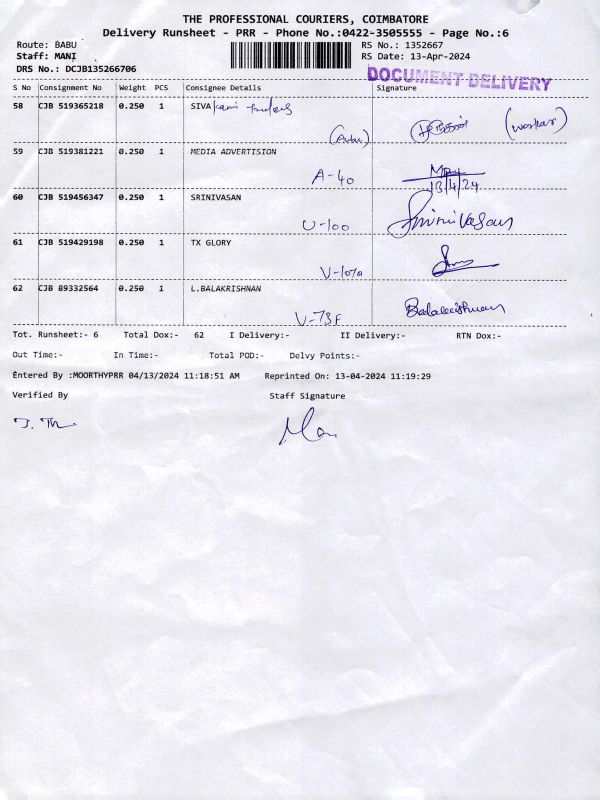 THE PROFESSIONAL COURIERS, COIMBATORE
Delivery Runsheet - PRR - Phone No.:0422-3505555 - Page No.:6
Route: BABU
RS No.: 1352667
Staff: MANI
RS Date: 13-Apr-2024
DRS No.: DCJB135266706
DOCUMENT DELIVERY
S No Consignment No Weight PCS Consignee Details Signature
58 CJB 519365218 0.250 1 SIVA
(worker)
59 CJB 519381221 0.250 1 MEDIA ADVERTISION
A-40
13/4/24
60 CJB 519456347 0.250 1 SRINIVASAN
U-100 Srinivasan
61 CJB 519429198 0.250 1 TX GLORY
V-10/a
62 CJB 89332564 0.250 1 L.BALAKRISHNAN
V-73F Balakrishnan
Tot. Runsheet:- 6 Total Dox:- 62 I Delivery:- II Delivery:- RTN Dox:-
Out Time:- In Time:- Total POD:- Delvy Points:-
Entered By :MOORTHYPRR 04/13/2024 11:18:51 AM Reprinted On: 13-04-2024 11:19:29
Verified By Staff Signature